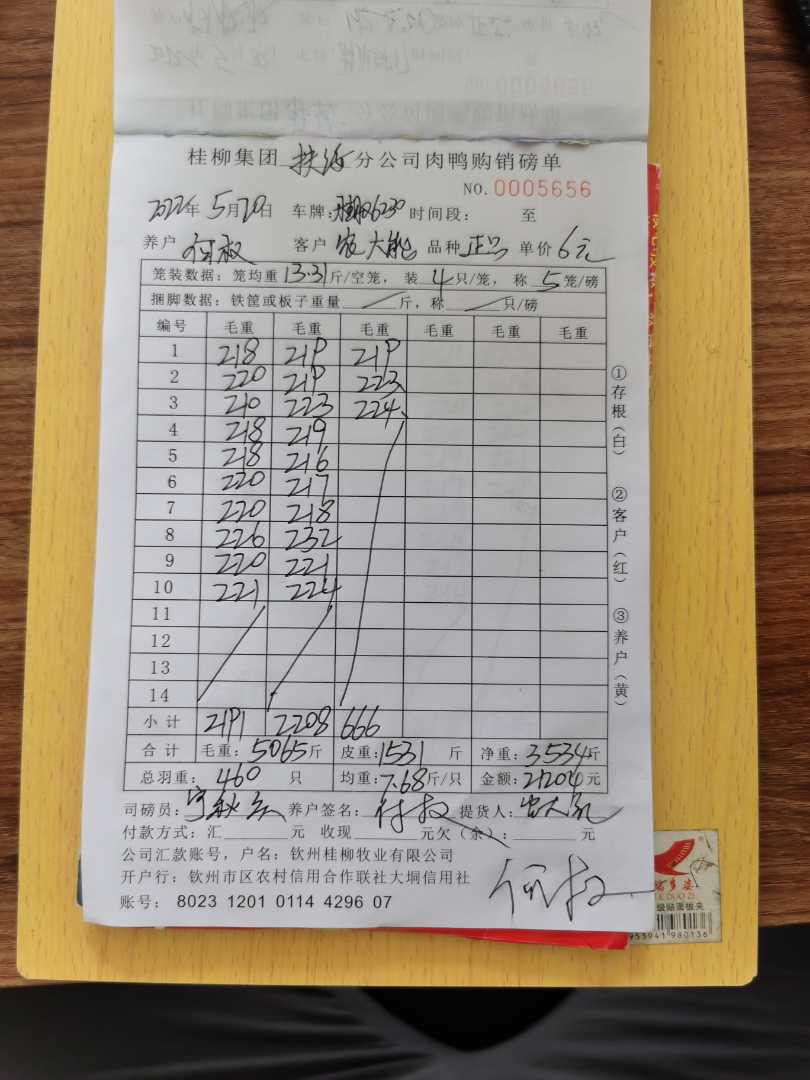 桂柳集团 扶绥 分公司肉鸭购销磅单
NO. 0005656
2022年 5月20日 车牌: 6230 时间段: 至
养户 何叔 客户 农大能 品种 正品 单价 6元
笼装数据: 笼均重 13.31 斤/空笼, 装 4 只/笼, 称 5 笼/磅
捆脚数据: 铁筐或板子重量 斤, 称 只/磅
编号 毛重 毛重 毛重 毛重 毛重 毛重
1 218 219 219
2 220 219 223
3 210 223 224
4 218 219
5 218 216
6 220 217
7 220 218
8 226 232
9 220 221
10 221 224
11
12
13
14
小计 2191 2208 666
合计 毛重: 5065斤 皮重: 1531 斤 净重: 3534斤
总羽重: 460 只 均重: 7.68斤/只 金额: 21204元
司磅员: 养户签名: 何叔 提货人: 农大能
付款方式: 汇 元 收现 元欠(余): 元
公司汇款账号, 户名: 钦州桂柳牧业有限公司
开户行: 钦州市区农村信用合作联社大垌信用社
账号: 8023 1201 0114 4296 07
何叔
①存根(白)
②客户(红)
③养户(黄)
953941 980136